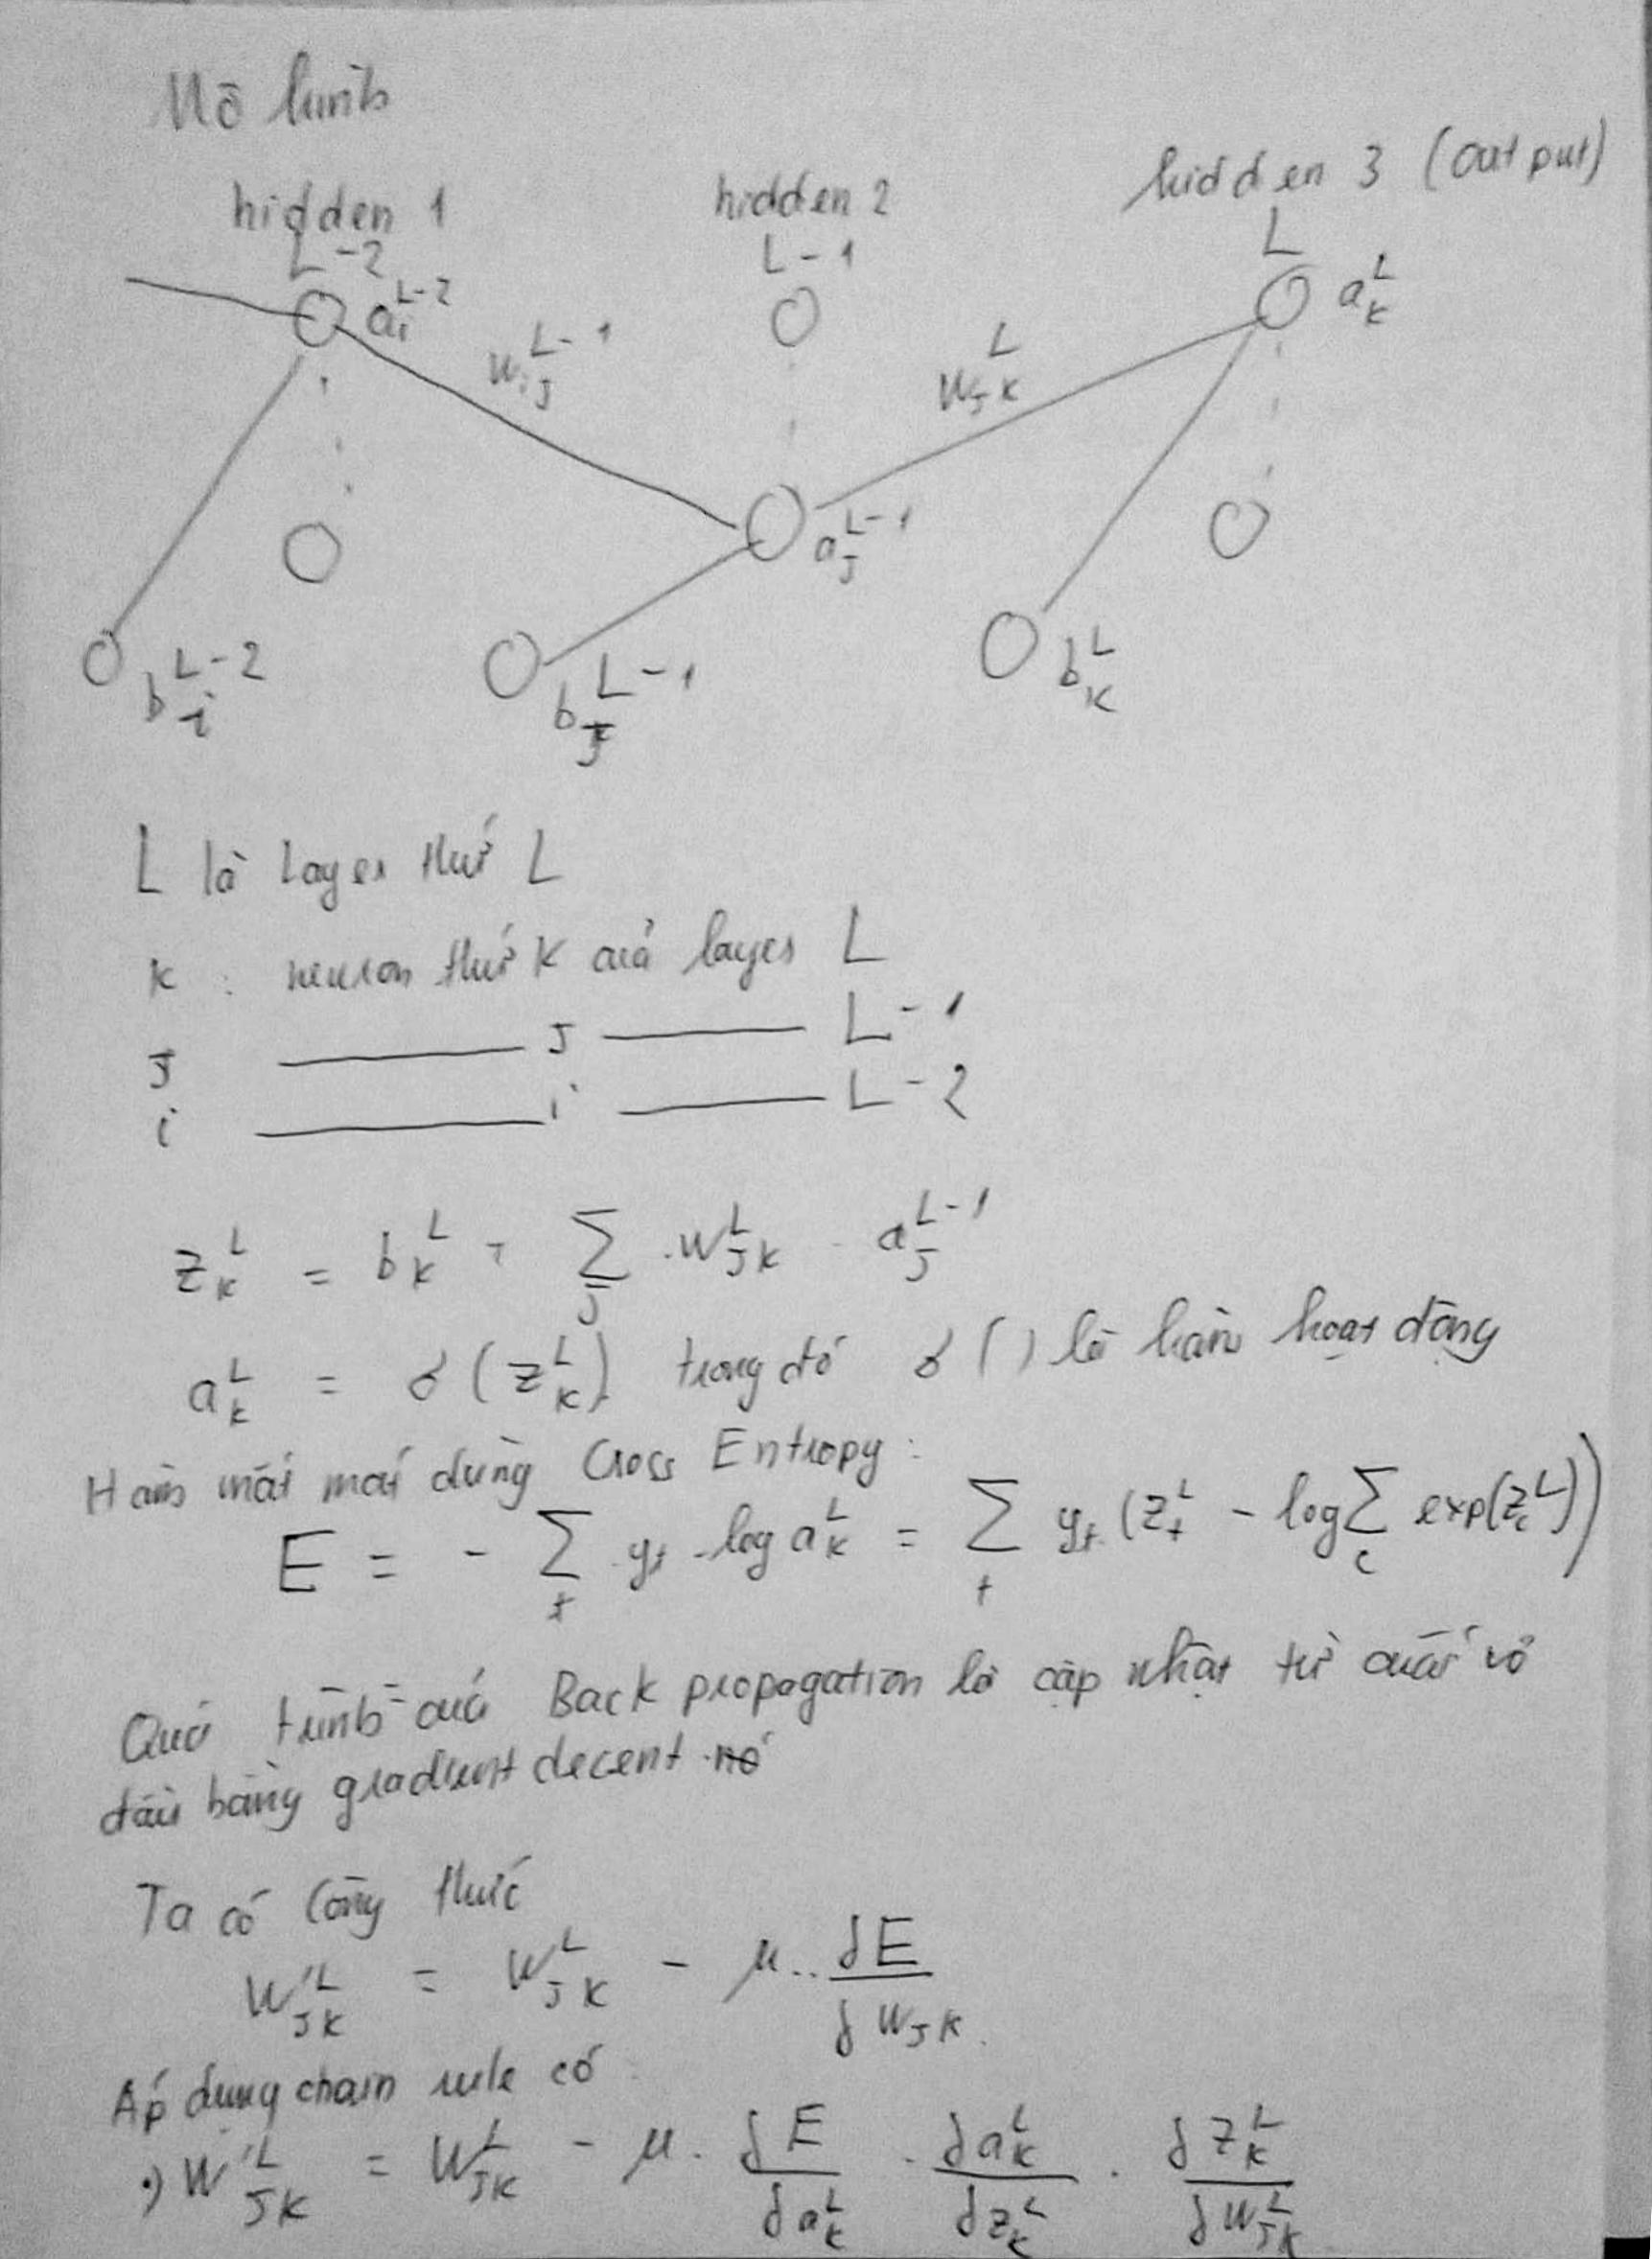 Mô hình
hidden 1 hidden 2 hidden 3 (output)
L-2 L-1 L
a_i^{L-2} w_{ij}^{L-1} w_{jk}^{L} a_k^{L}
a_j^{L-1}
b_i^{L-2} b_j^{L-1} b_k^{L}
L là Layer thứ L
k : neuron thứ k của layer L
j ——— j ——— L-1
i ——— i ——— L-2
z_k^L = b_k^L + ∑_j w_{jk}^L . a_j^{L-1}
a_k^L = σ(z_k^L) trong đó σ() là hàm hoạt động
Hàm mất mát dùng Cross Entropy :
E = - ∑_t y_t . log a_k^L = ∑_t y_t (z_t^L - log ∑_c exp(z_c^L))
Quá trình của Back propagation là cập nhật từ cuối về
đầu bằng gradient decent nó
Ta có công thức
w'_{jk}^L = w_{jk}^L - μ . δE / δw_{jk}
Áp dụng chain rule có
•) w'_{jk}^L = w_{jk}^L - μ . δE / δa_k^L . δa_k^L / δz_k^L . δz_k^L / δw_{jk}^L